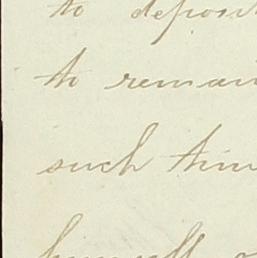 to deposit
to remain
such time
himself